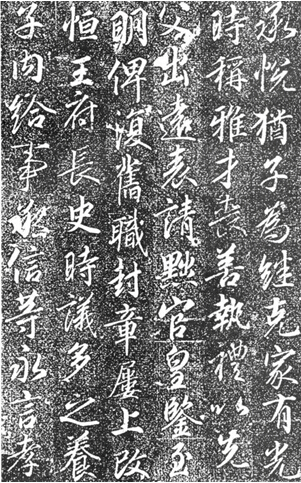 承悅猶子為継克家有光
時稱雅才喪善執禮以先
父出遠表請黜官皇鑒至
明俾復舊職封章屢上改
恒王府長史時議多之養
子内給事信等永言孝